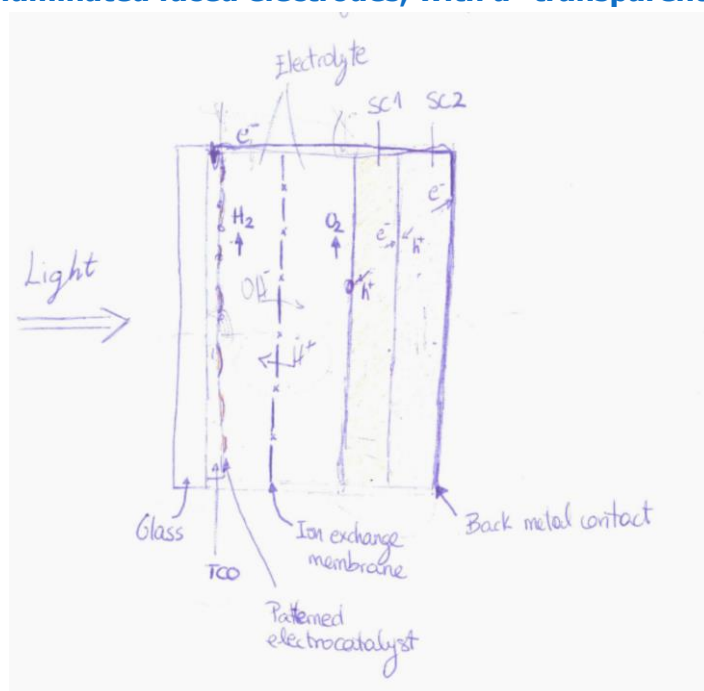 Electrolyte
SC1 SC2
e⁻
H₂
O₂
e⁻
e⁻
h⁺
h⁺
Light
OH⁻
H⁺
Glass
TCO
Ion exchange
membrane
Back metal contact
Patterned
electrocatalyst